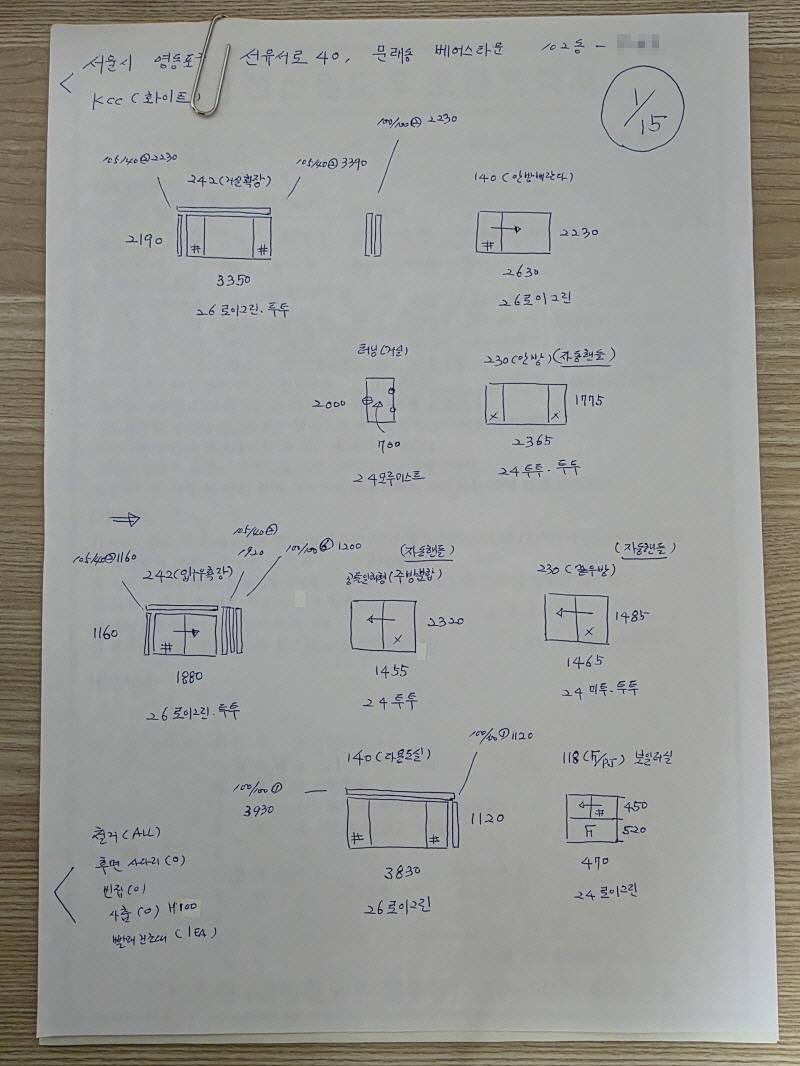 서울시 영등포구 선유서로 40, 문래동 베어스타운 102동 -
KCC (화이트)
1/15
100/100 2230
105/40 2230
242(거실확장)
105/40 3390
140(안방베란다)
2190
#
#
3350
26 로이그린. 투투
#
2230
2630
26 로이그린
터닝(거실)
2000
700
24 모루미스트
230(안방)(자동핸들)
1775
x
x
2365
24 투투. 투투
105/40 1160
242(입구우확장)
105/40
1920
100/100 1200
1160
#
1880
26 로이그린. 투투
(자동핸들)
(주방분합)
2320
x
1455
24 투투
(자동핸들)
230(입구방)
1485
x
1465
24 미투. 투투
140(다용도실)
100/100 ① 1120
100/100 ①
3930
1120
#
#
3830
26 로이그린
118(Fi/PJ) 보일러실
450
#
520
Fi
470
24 로이그린
철거(ALL)
후면 사다리(0)
빈집(0)
사춤(0) H100
빨래건조대 (1EA)